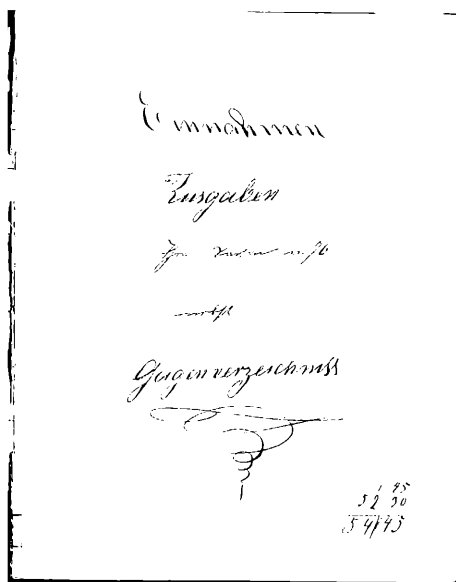 Einnahmen
Ausgaben
nebst
Gagenverzeichniss
1 45
52 30
54/45